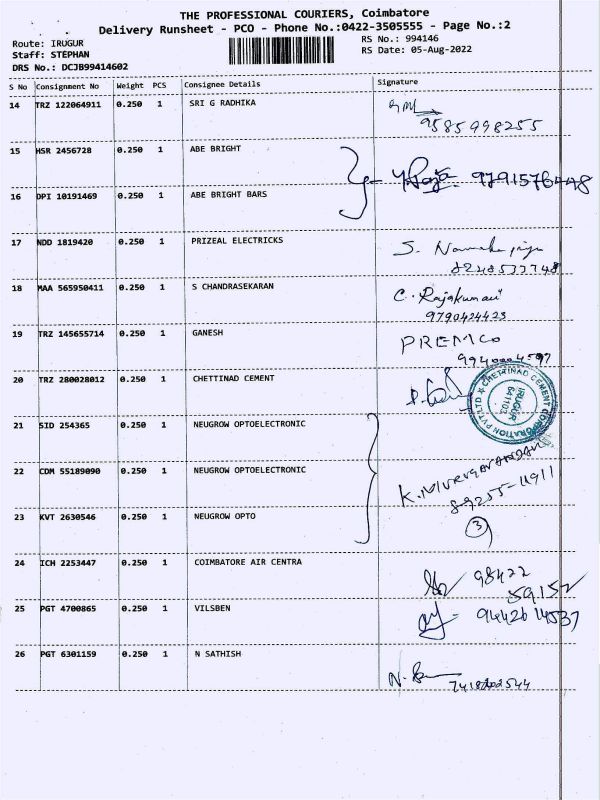 THE PROFESSIONAL COURIERS, Coimbatore
Delivery Runsheet - PCO - Phone No.:0422-3505555 - Page No.:2
Route: IRUGUR
RS No.: 994146
Staff: STEPHAN
RS Date: 05-Aug-2022
DRS No.: DCJB99414602
S No Consignment No Weight PCS Consignee Details Signature
14 TRZ 122064911 0.250 1 SRI G RADHIKA
9585998255
15 HSR 2456728 0.250 1 ABE BRIGHT
16 DPI 10191469 0.250 1 ABE BRIGHT BARS
17 NDD 1819420 0.250 1 PRIZEAL ELECTRICKS
S.
18 MAA 565950411 0.250 1 S CHANDRASEKARAN
C. Rajakumari
9790424423
19 TRZ 145655714 0.250 1 GANESH
PREMCO
20 TRZ 280028012 0.250 1 CHETTINAD CEMENT
CHETTINAD CEMENT CORPORATION PVT LTD
IRUGUR
641103
21 SID 254365 0.250 1 NEUGROW OPTOELECTRONIC
22 CDM 55189090 0.250 1 NEUGROW OPTOELECTRONIC
K. MURUGANANDAN
89255-11911
23 KVT 2630546 0.250 1 NEUGROW OPTO
3
24 ICH 2253447 0.250 1 COIMBATORE AIR CENTRA
98422
59152
25 PGT 4700865 0.250 1 VILSBEN
9442614537
26 PGT 6301159 0.250 1 N SATHISH